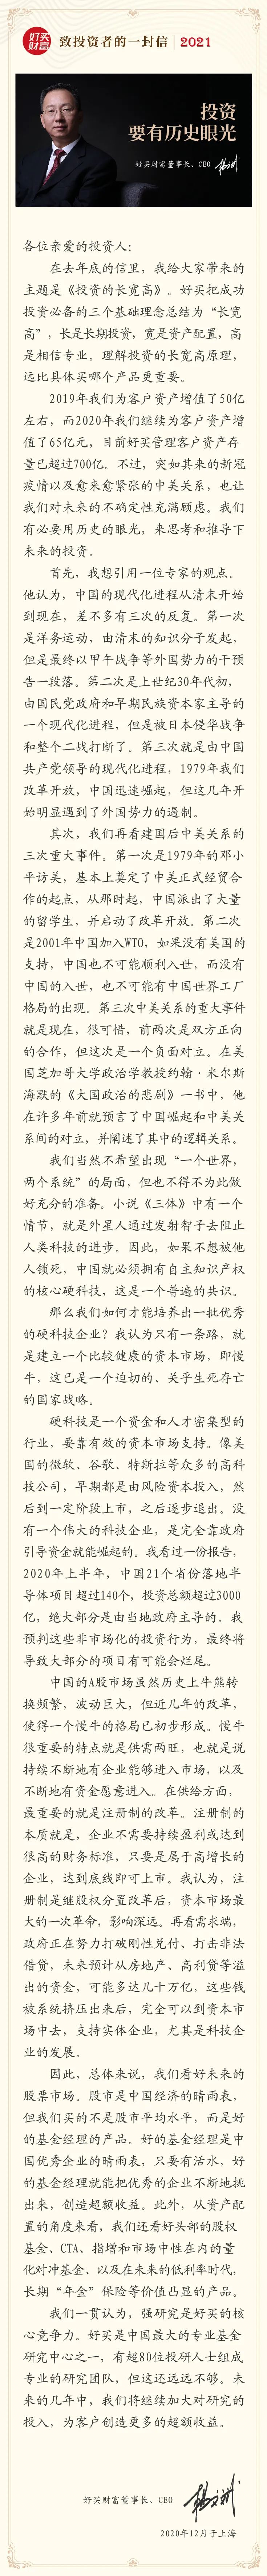 好买
财富
致投资者的一封信 | 2021
投资
要有历史眼光
好买财富董事长、CEO
各位亲爱的投资人：
在去年底的信里，我给大家带来的
主题是《投资的长宽高》。好买把成功
投资必备的三个基础理念总结为“长宽
高”，长是长期投资，宽是资产配置，高
是相信专业。理解投资的长宽高原理，
远比具体买哪个产品更重要。
2019年我们为客户资产增值了50亿
左右，而2020年我们继续为客户资产增
值了65亿元，目前好买管理客户资产存
量已超过700亿。不过，突如其来的新冠
疫情以及愈来愈紧张的中美关系，也让
我们对未来的不确定性充满顾虑。我们
有必要用历史的眼光，来思考和推导下
未来的投资。
首先，我想引用一位专家的观点。
他认为，中国的现代化进程从清末开始
到现在，差不多有三次的反复。第一次
是洋务运动，由清末的知识分子发起，
但是最终以甲午战争等外国势力的干预
告一段落。第二次是上世纪30年代初，
由国民党政府和早期民族资本家主导的
一个现代化进程，但是被日本侵华战争
和整个二战打断了。第三次就是由中国
共产党领导的现代化进程，1979年我们
改革开放，中国迅速崛起，但这几年开
始明显遇到了外国势力的遏制。
其次，我们再看建国后中美关系的
三次重大事件。第一次是1979年的邓小
平访美，基本上奠定了中美正式经贸合
作的起点，从那时起，中国派出了大量
的留学生，并启动了改革开放。第二次
是2001年中国加入WTO，如果没有美国的
支持，中国也不可能顺利入世，而没有
中国的入世，也不可能有中国世界工厂
格局的出现。第三次中美关系的重大事件
就是现在，很可惜，前两次是双方正向
的合作，但这次是一个负面对立。在美
国芝加哥大学政治学教授约翰·米尔斯
海默的《大国政治的悲剧》一书中，他
在许多年前就预言了中国崛起和中美关
系间的对立，并阐述了其中的逻辑关系。
我们当然不希望出现“一个世界，
两个系统”的局面，但也不得不为此做
好充分的准备。小说《三体》中有一个
情节，就是外星人通过发射智子去阻止
人类科技的进步。因此，如果不想被他
人锁死，中国就必须拥有自主知识产权
的核心硬科技，这是一个普遍的共识。
那么我们如何才能培养出一批优秀
的硬科技企业？我认为只有一条路，就
是建立一个比较健康的资本市场，即慢
牛，这已是一个迫切的、关乎生死存亡
的国家战略。
硬科技是一个资金和人才密集型的
行业，要靠有效的资本市场支持。像美
国的微软、谷歌、特斯拉等众多的高科
技公司，早期都是由风险资本投入，然
后到一定阶段上市，之后逐步退出。没
有一个伟大的科技企业，是完全靠政府
引导资金就能崛起的。我看过一份报告，
2020年上半年，中国21个省份落地半
导体项目超过140个，投资总额超过3000
亿，绝大部分是由当地政府主导的。我
预判这些非市场化的投资行为，最终将
导致大部分的项目有可能会烂尾。
中国的A股市场虽然历史上牛熊转
换频繁，波动巨大，但近几年的改革，
使得一个慢牛的格局已初步形成。慢牛
很重要的特点就是供需两旺，也就是说
持续不断地有企业能够进入市场，以及
不断地有资金愿意进入。在供给方面，
最重要的就是注册制的改革。注册制的
本质就是，企业不需要持续盈利或达到
很高的财务标准，只要是属于高增长的
企业，达到底线即可上市。我认为，注
册制是继股权分置改革后，资本市场最
大的一次革命，影响深远。再看需求端，
政府正在努力打破刚性兑付、打击非法
借贷，未来预计从房地产、高利贷等溢
出的资金，可能多达几十万亿，这些钱
被系统挤压出来后，完全可以到资本市
场中去，支持实体企业，尤其是科技企
业的发展。
因此，总体来说，我们看好未来的
股票市场。股市是中国经济的晴雨表，
但我们买的不是股市平均水平，而是好
的基金经理的产品。好的基金经理是中
国优秀企业的晴雨表，只要有活水，好
的基金经理就能把优秀的企业不断地挑
出来，创造超额收益。此外，从资产配
置的角度来看，我们还看好头部的股权
基金、CTA、指增和市场中性在内的量
化对冲基金、以及在未来的低利率时代，
长期“年金”保险等价值凸显的产品。
我们一贯认为，强研究是好买的核
心竞争力。好买是中国最大的专业基金
研究中心之一，有超80位投研人士组成
专业的研究团队，但这还远远不够。未
来的几年中，我们将继续加大对研究的
投入，为客户创造更多的超额收益。
好买财富董事长、CEO 杨文斌
2020年12月于上海